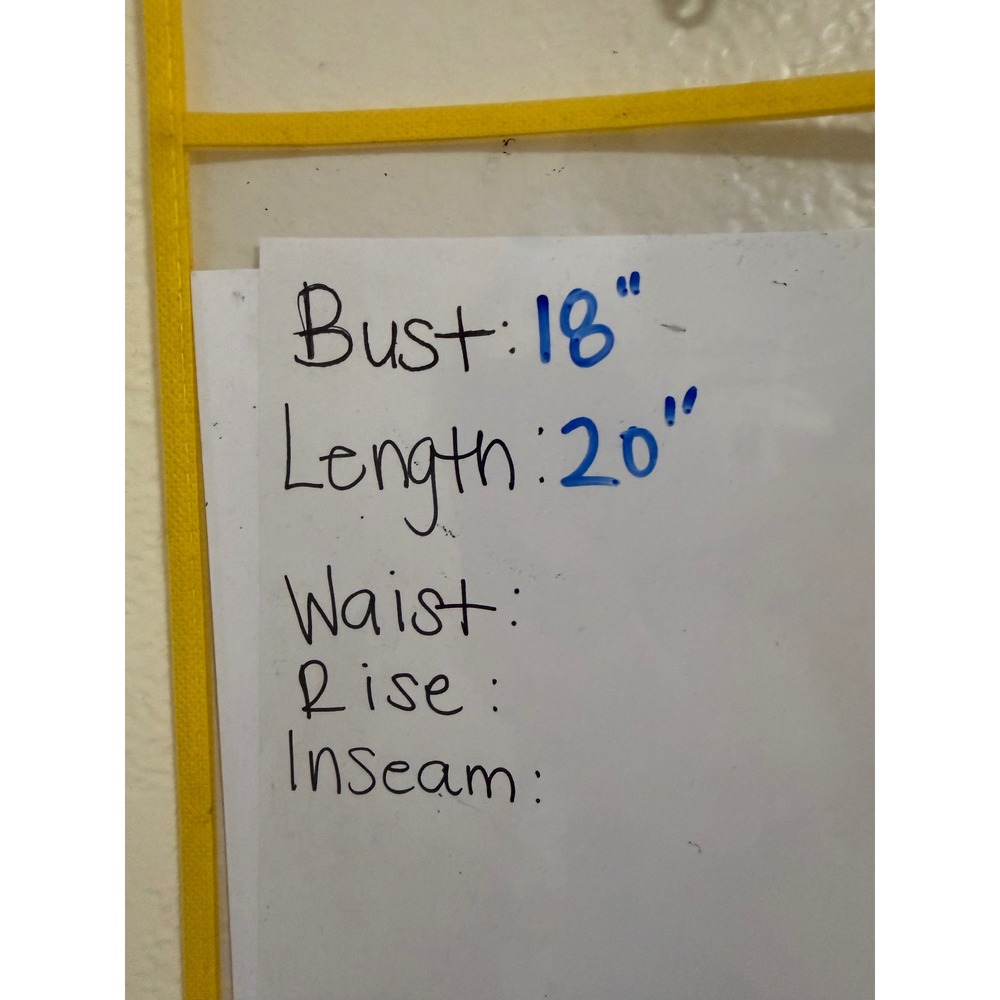 Bust: 18"
Length: 20"
Waist:
Rise:
Inseam: